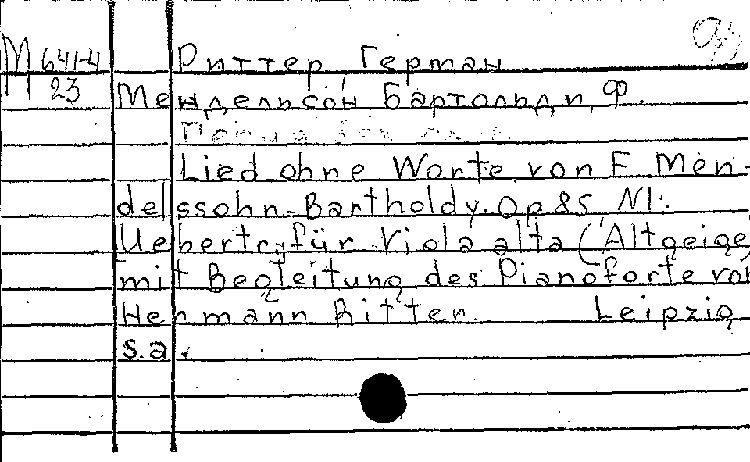 М 641-4 Риттер Герман
23 Мендельсон Бартольди, Ф.
Lied ohne Worte von F Men-
delssohn-Bartholdy. Op 85 N1.
Uebertr. für Viola alta (Altgeige
mit Begleitung des Pianoforte von
Hermann Ritter. Leipzig
s.a.